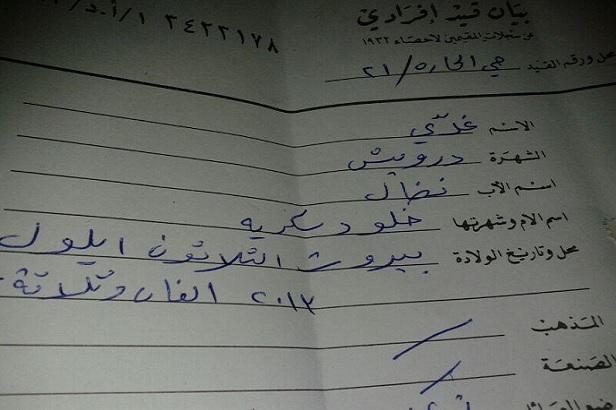 بيان قيد إفرادي
٢٤٢٢١٧٨
عن سجلات المقيمين لاحصاء ١٩٣٢
محل ورقم القيد حي الحاره / ٢١
الاسم
الشهرة درويش
اسم الأب نضال
اسم الام وشهرتها خلود سكريه
محل وتاريخ الولادة بيروت الثلاثون ايلول
٢٠١٣ الفان وثلاثة
المذهب /
الصنعة /